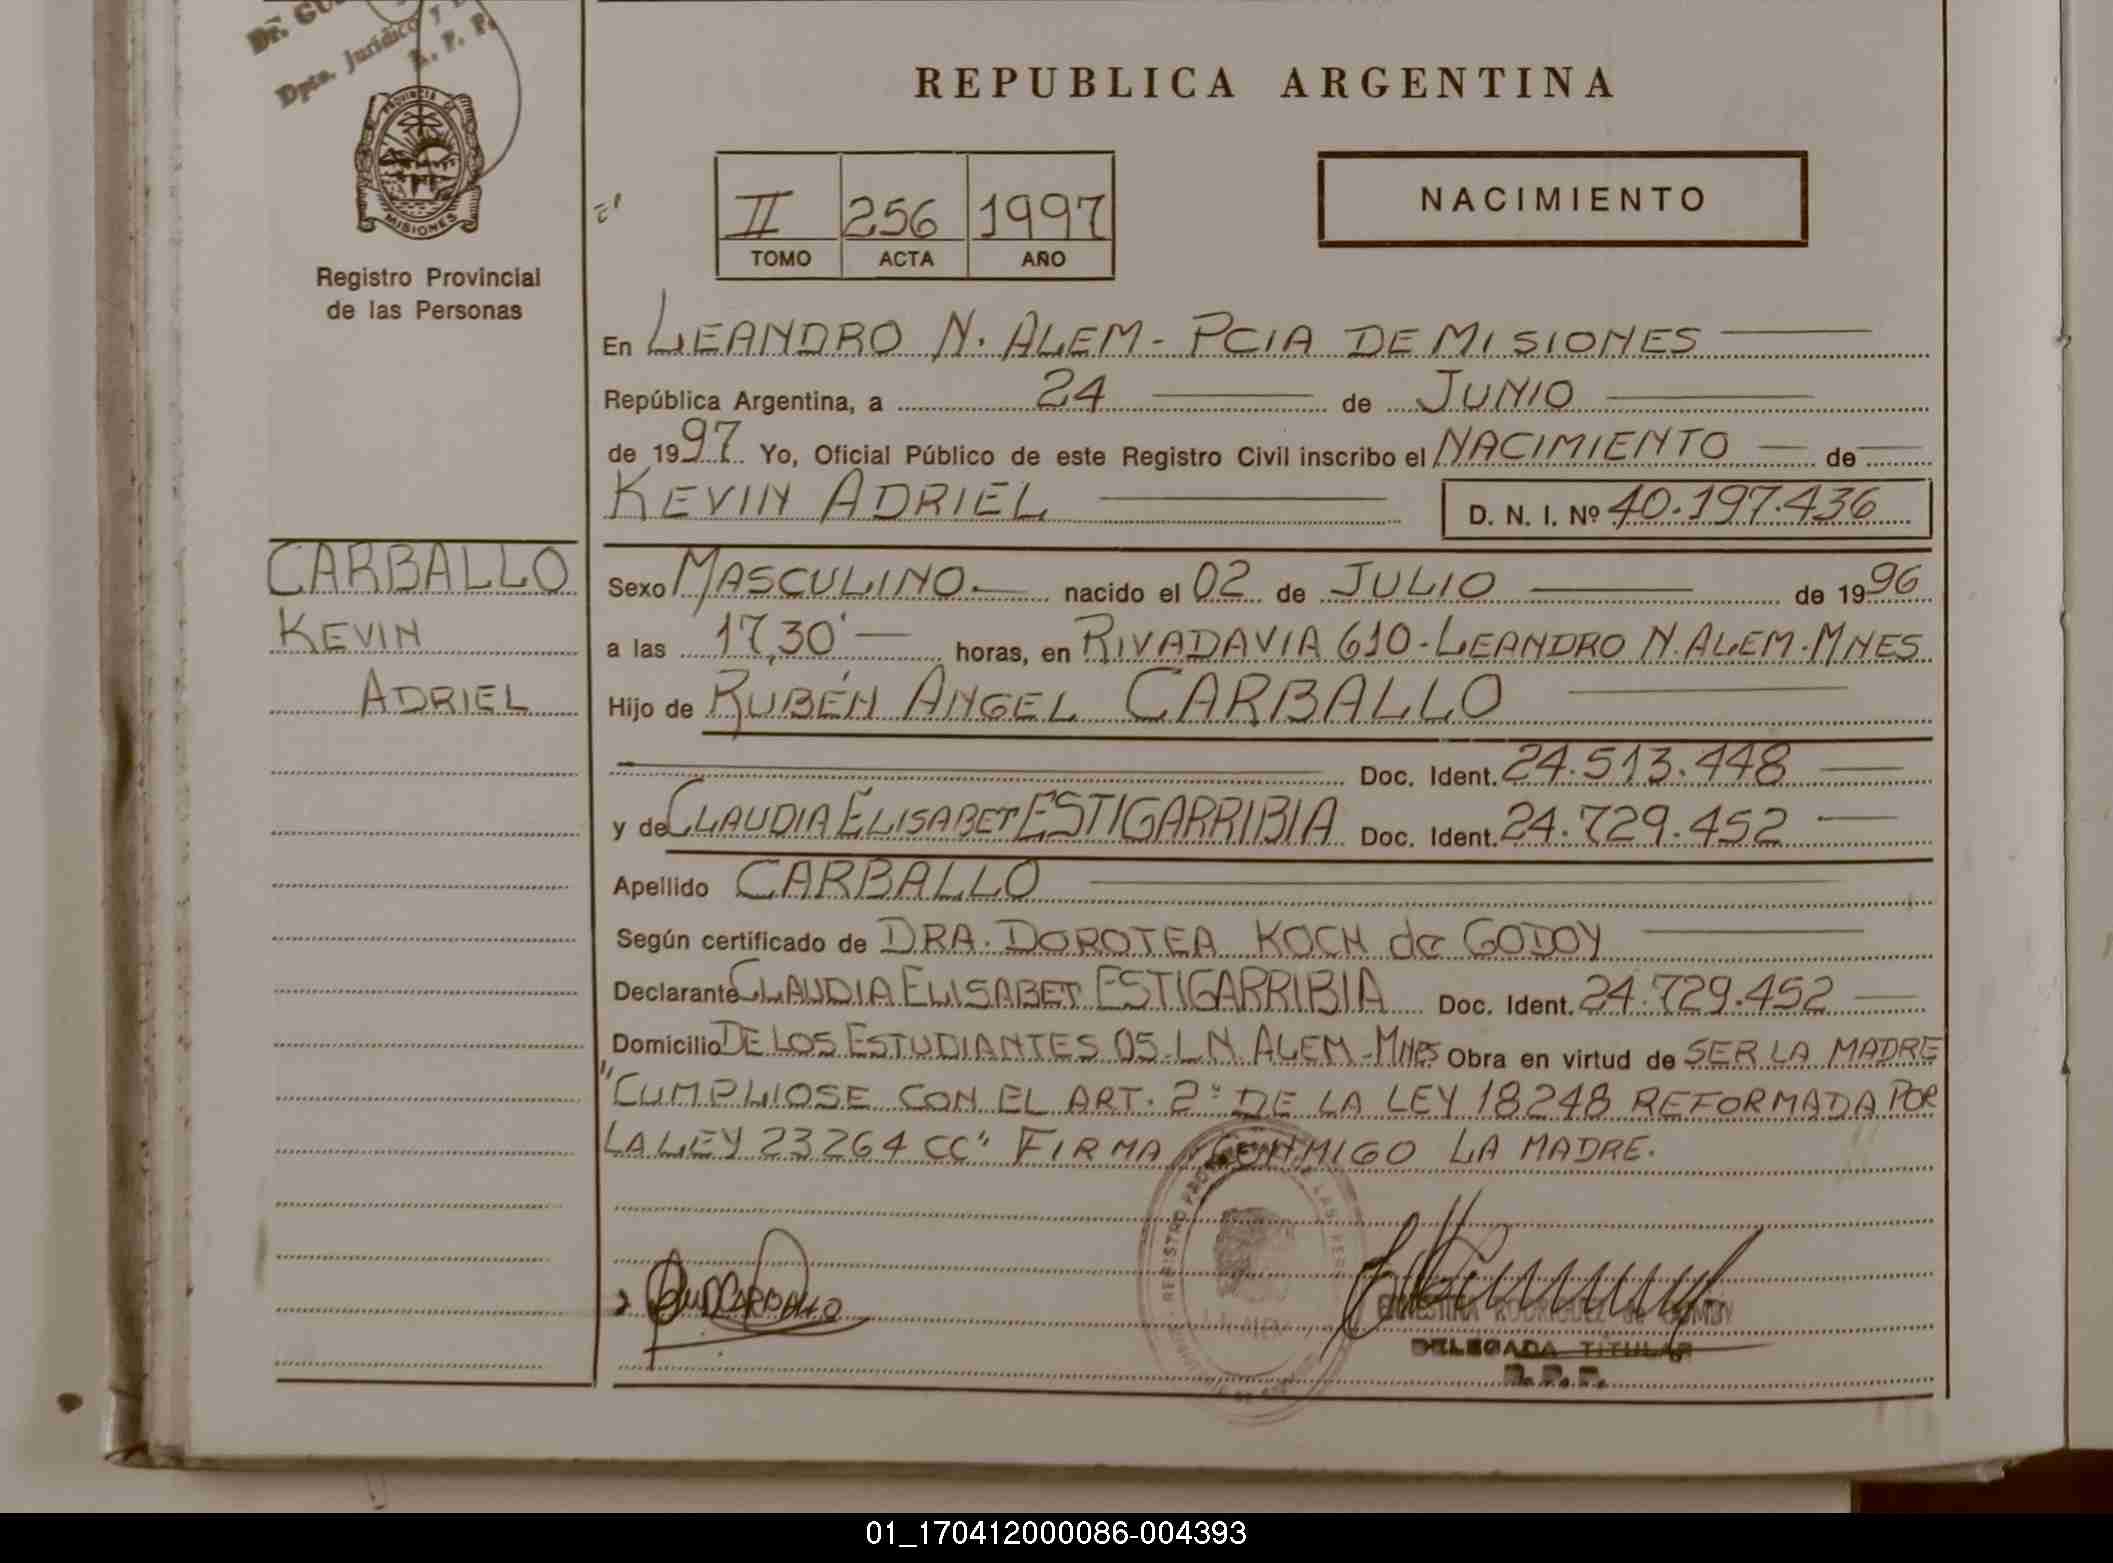 Dr. GU
Dpto. Jurídico y
R. P. P.
PROVINCIA DE
MISIONES
Registro Provincial
de las Personas
REPUBLICA ARGENTINA
NACIMIENTO
II 256 1997
TOMO ACTA AÑO
En LEANDRO N. ALEM - PCIA DE MISIONES
República Argentina, a 24 de JUNIO
de 1997 Yo, Oficial Público de este Registro Civil inscribo el NACIMIENTO de
KEVIN ADRIEL D. N. I. Nº 40.197.436
CARBALLO
KEVIN
ADRIEL
Sexo MASCULINO.- nacido el 02 de JULIO de 1996
a las 17,30' horas, en RIVADAVIA 610 - LEANDRO N. ALEM - MNES
Hijo de RUBÉN ANGEL CARBALLO
Doc. Ident. 24.513.448
y de CLAUDIA ELISABET ESTIGARRIBIA Doc. Ident. 24.729.452
Apellido CARBALLO
Según certificado de DRA. DOROTEA KOCH de GODOY
Declarante CLAUDIA ELISABET ESTIGARRIBIA Doc. Ident. 24.729.452
Domicilio DE LOS ESTUDIANTES 05 - L N. ALEM - MNES Obra en virtud de SER LA MADRE
"CUMPLIOSE CON EL ART. 2º DE LA LEY 18248 REFORMADA POR
LA LEY 23264 CC" FIRMA CONMIGO LA MADRE.
REGISTRO PROV LAS PER
CARBALLO
ERNESTINA RODRIGUEZ de GODOY
DELEGADA TITULAR
R. P. P.
01_170412000086-004393